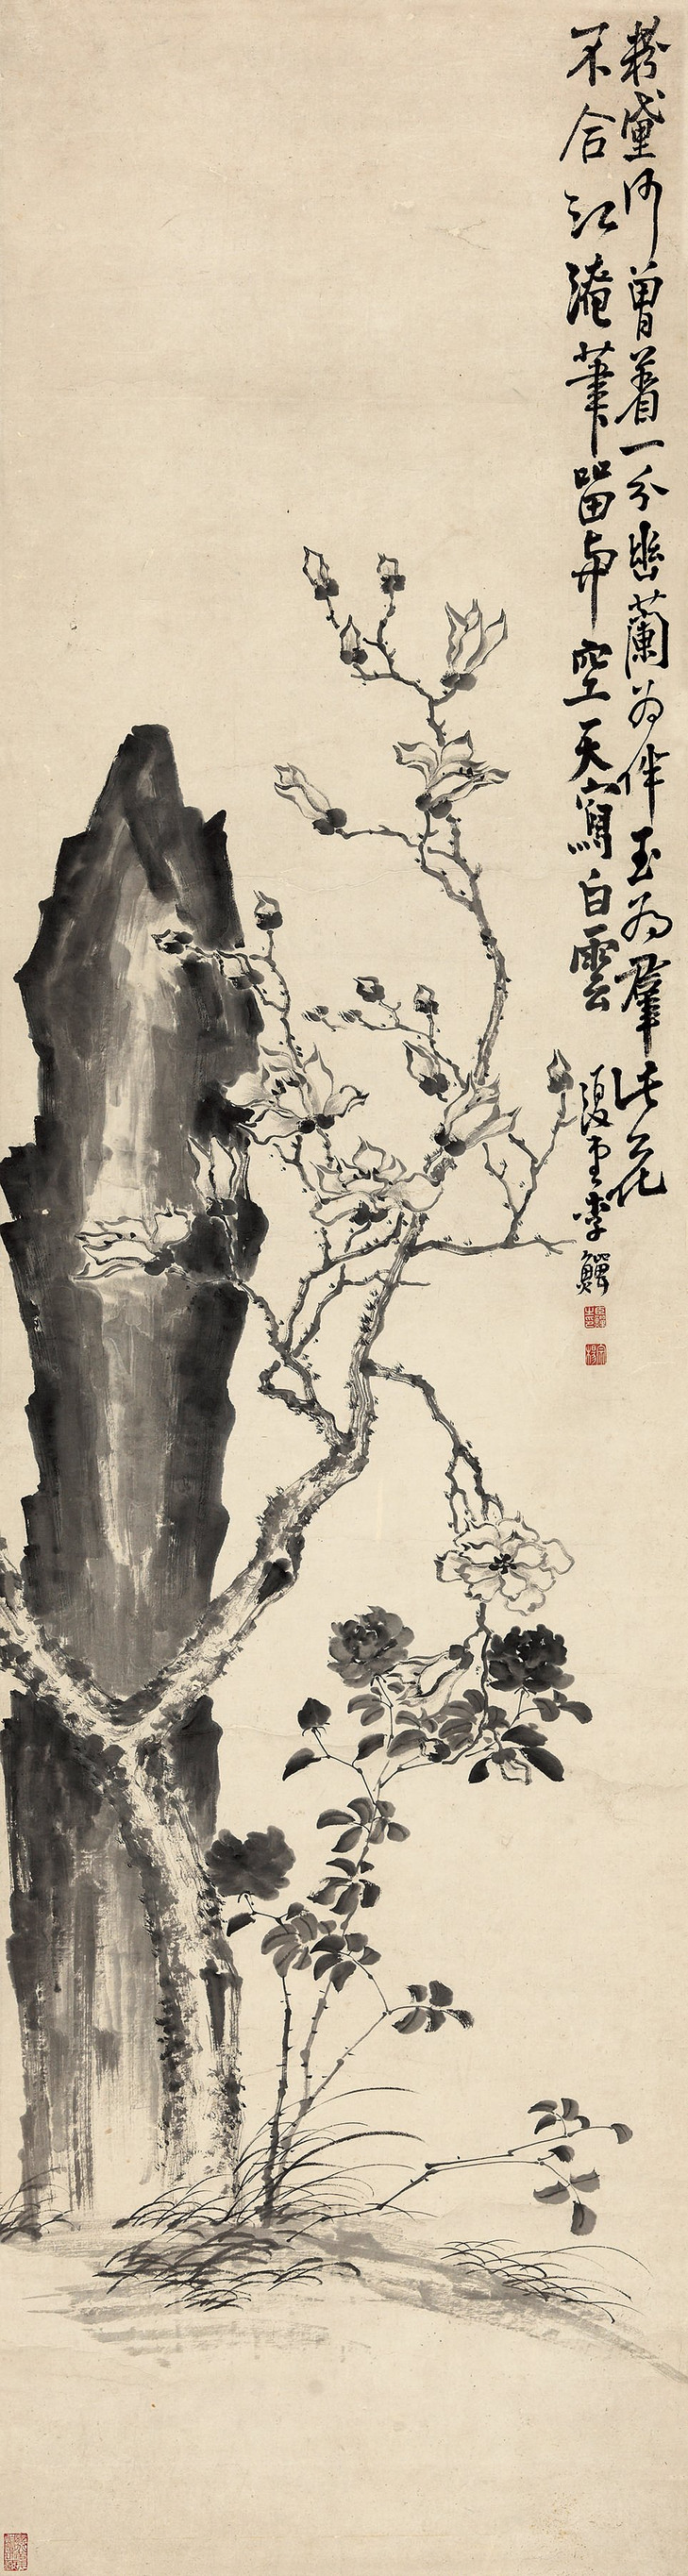 粉黛何曾着一分幽蘭為伴玉為羣此花
不合江淹筆留與空天寫白雲
復堂李鱓